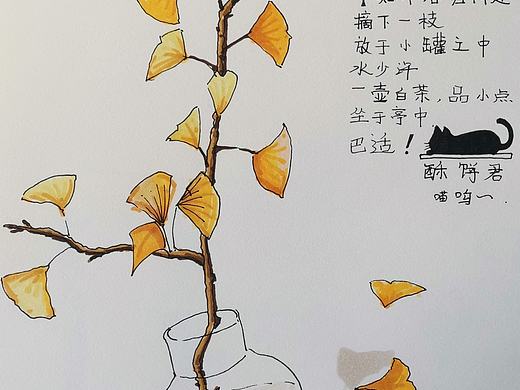 摘下一枝
放于小罐之中
水少许
一壶白茶,品小点
坐于亭中
巴适!
酥饼君
喵呜~.